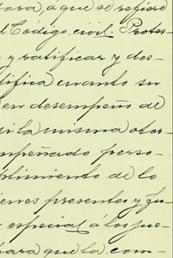 cosa, a que se refiere
l Código civil. Protes-
y ratificar y dos-
difica cuanto su
en desempeño de
la misma otor-
mpeñado perso-
plimiento de lo
ienes presentes y fu-
especial á los pue-
para que la com-